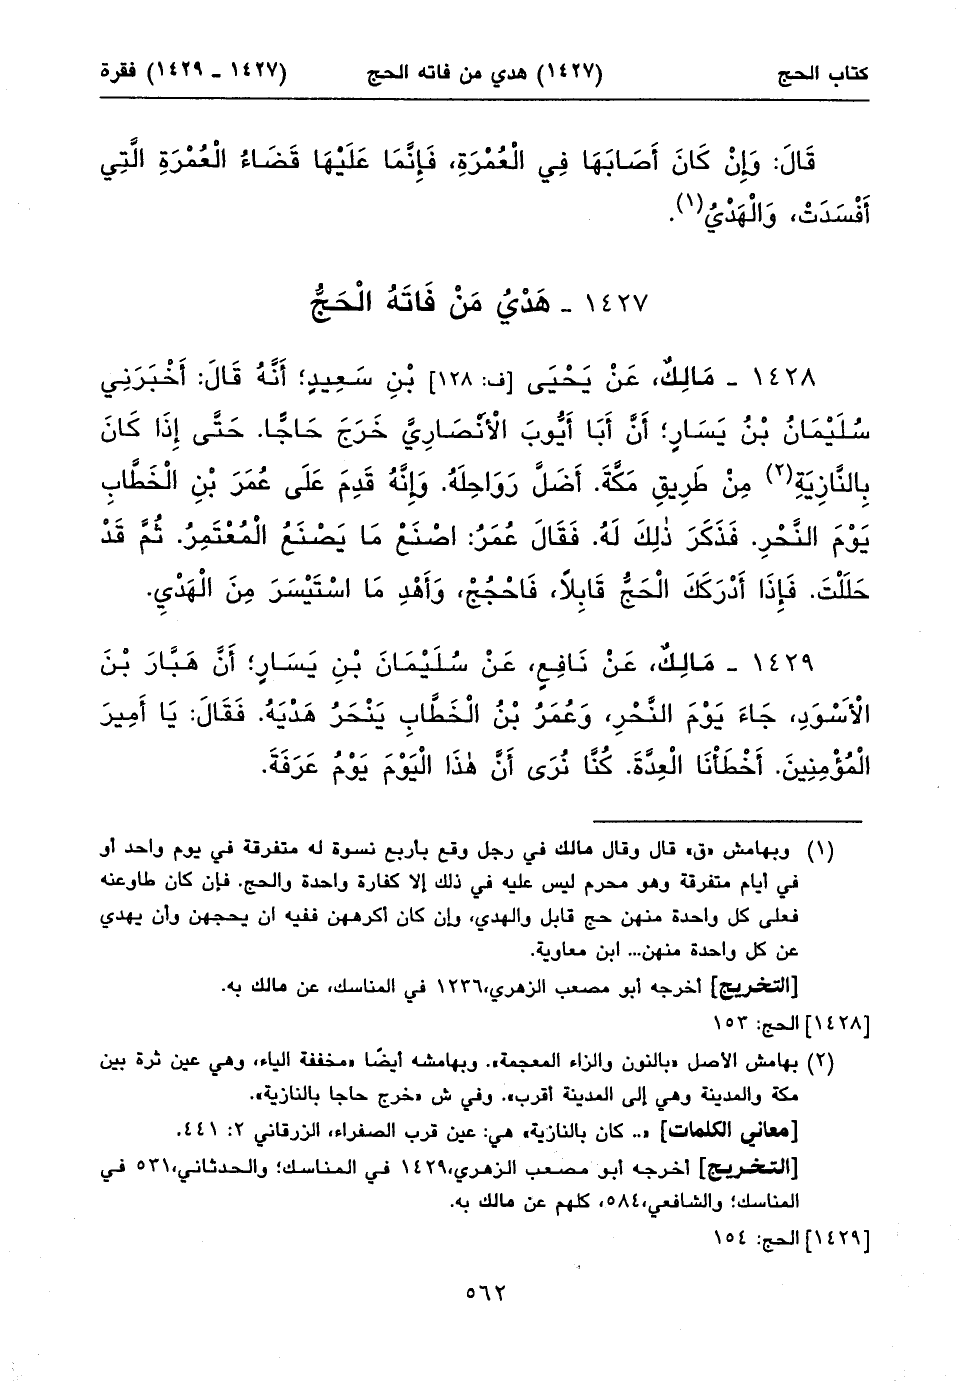 كتاب الحج (١٤٢٧) هدي من فاته الحج (١٤٢٧ - ١٤٢٩) فقرة
قَالَ: وَإِنْ كَانَ أَصَابَهَا فِي الْعُمْرَةِ، فَإِنَّمَا عَلَيْهَا قَضَاءُ الْعُمْرَةِ الَّتِي
أَفْسَدَتْ، وَالْهَدْيُ(١).
١٤٢٧ - هَدْيُ مَنْ فَاتَهُ الْحَجُّ
١٤٢٨ - مَالِكٌ، عَنْ يَحْيَى [ف: ١٢٨] بْنِ سَعِيدٍ؛ أَنَّهُ قَالَ: أَخْبَرَنِي
سُلَيْمَانُ بْنُ يَسَارٍ؛ أَنَّ أَبَا أَيُّوبَ الْأَنْصَارِيَّ خَرَجَ حَاجًّا. حَتَّى إِذَا كَانَ
بِالنَّازِيَةِ(٢) مِنْ طَرِيقِ مَكَّةَ. أَضَلَّ رَوَاحِلَهُ. وَإِنَّهُ قَدِمَ عَلَى عُمَرَ بْنِ الْخَطَّابِ
يَوْمَ النَّحْرِ. فَذَكَرَ ذٰلِكَ لَهُ. فَقَالَ عُمَرُ: اصْنَعْ مَا يَصْنَعُ الْمُعْتَمِرُ. ثُمَّ قَدْ
حَلَلْتَ. فَإِذَا أَدْرَكَكَ الْحَجُّ قَابِلاً، فَاحْجُجْ، وَأَهْدِ مَا اسْتَيْسَرَ مِنَ الْهَدْيِ.
١٤٢٩ - مَالِكٌ، عَنْ نَافِعٍ، عَنْ سُلَيْمَانَ بْنِ يَسَارٍ؛ أَنَّ هَبَّارَ بْنَ
الْأَسْوَدِ، جَاءَ يَوْمَ النَّحْرِ، وَعُمَرُ بْنُ الْخَطَّابِ يَنْحَرُ هَدْيَهُ. فَقَالَ: يَا أَمِيرَ
الْمُؤْمِنِينَ. أَخْطَأْنَا الْعِدَّةَ. كُنَّا نُرَى أَنَّ هٰذَا الْيَوْمَ يَوْمُ عَرَفَةَ.
(١) وبهامش «ق» قال وقال مالك في رجل وقع بأربع نسوة له متفرقة في يوم واحد أو
في أيام متفرقة وهو محرم ليس عليه في ذلك إلا كفارة واحدة والحج. فإن كان طاوعنه
فعلى كل واحدة منهن حج قابل والهدي، وإن كان أكرههن ففيه ان يحجهن وأن يهدي
عن كل واحدة منهن... ابن معاوية.
[التخريج] أخرجه أبو مصعب الزهري،١٢٣٦ في المناسك، عن مالك به.
[١٤٢٨] الحج: ١٥٣
(٢) بهامش الأصل «بالنون والزاء المعجمة». وبهامشه أيضًا «مخففة الياء، وهي عين ثرة بين
مكة والمدينة وهي إلى المدينة أقرب». وفي ش «خرج حاجا بالنازية».
[معاني الكلمات] «.. كان بالنازية» هي: عين قرب الصفراء، الزرقاني ٢: ٤٤١.
[التخريج] أخرجه أبو مصعب الزهري،١٤٢٩ في المناسك؛ والحدثاني،٥٣١ في
المناسك؛ والشافعي،٥٨٤، كلهم عن مالك به.
[١٤٢٩] الحج: ١٥٤
٥٦٢